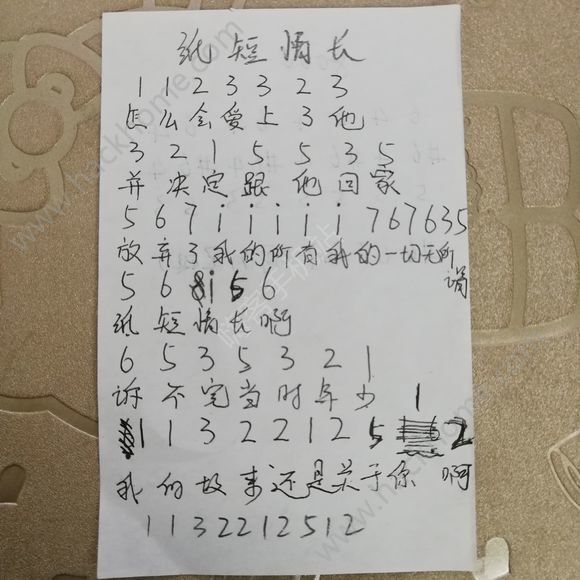 纸短情长
1 1 2 3 3 2 3
怎么会爱上3他
3 2 1 5 5 3 5
并决定跟他回家
5 6 7 i i i i i 7 6 7 6 3 5
放弃了我的所有我的一切无所谓
5 6 8i 5 6
纸短情长啊
6 5 3 5 3 2 1
诉不完当时年少
1 1 3 2 2 1 2 5 1 2
我的故事还是关于你啊
1 1 3 2 2 1 2 5 1 2
www.hackhome.com